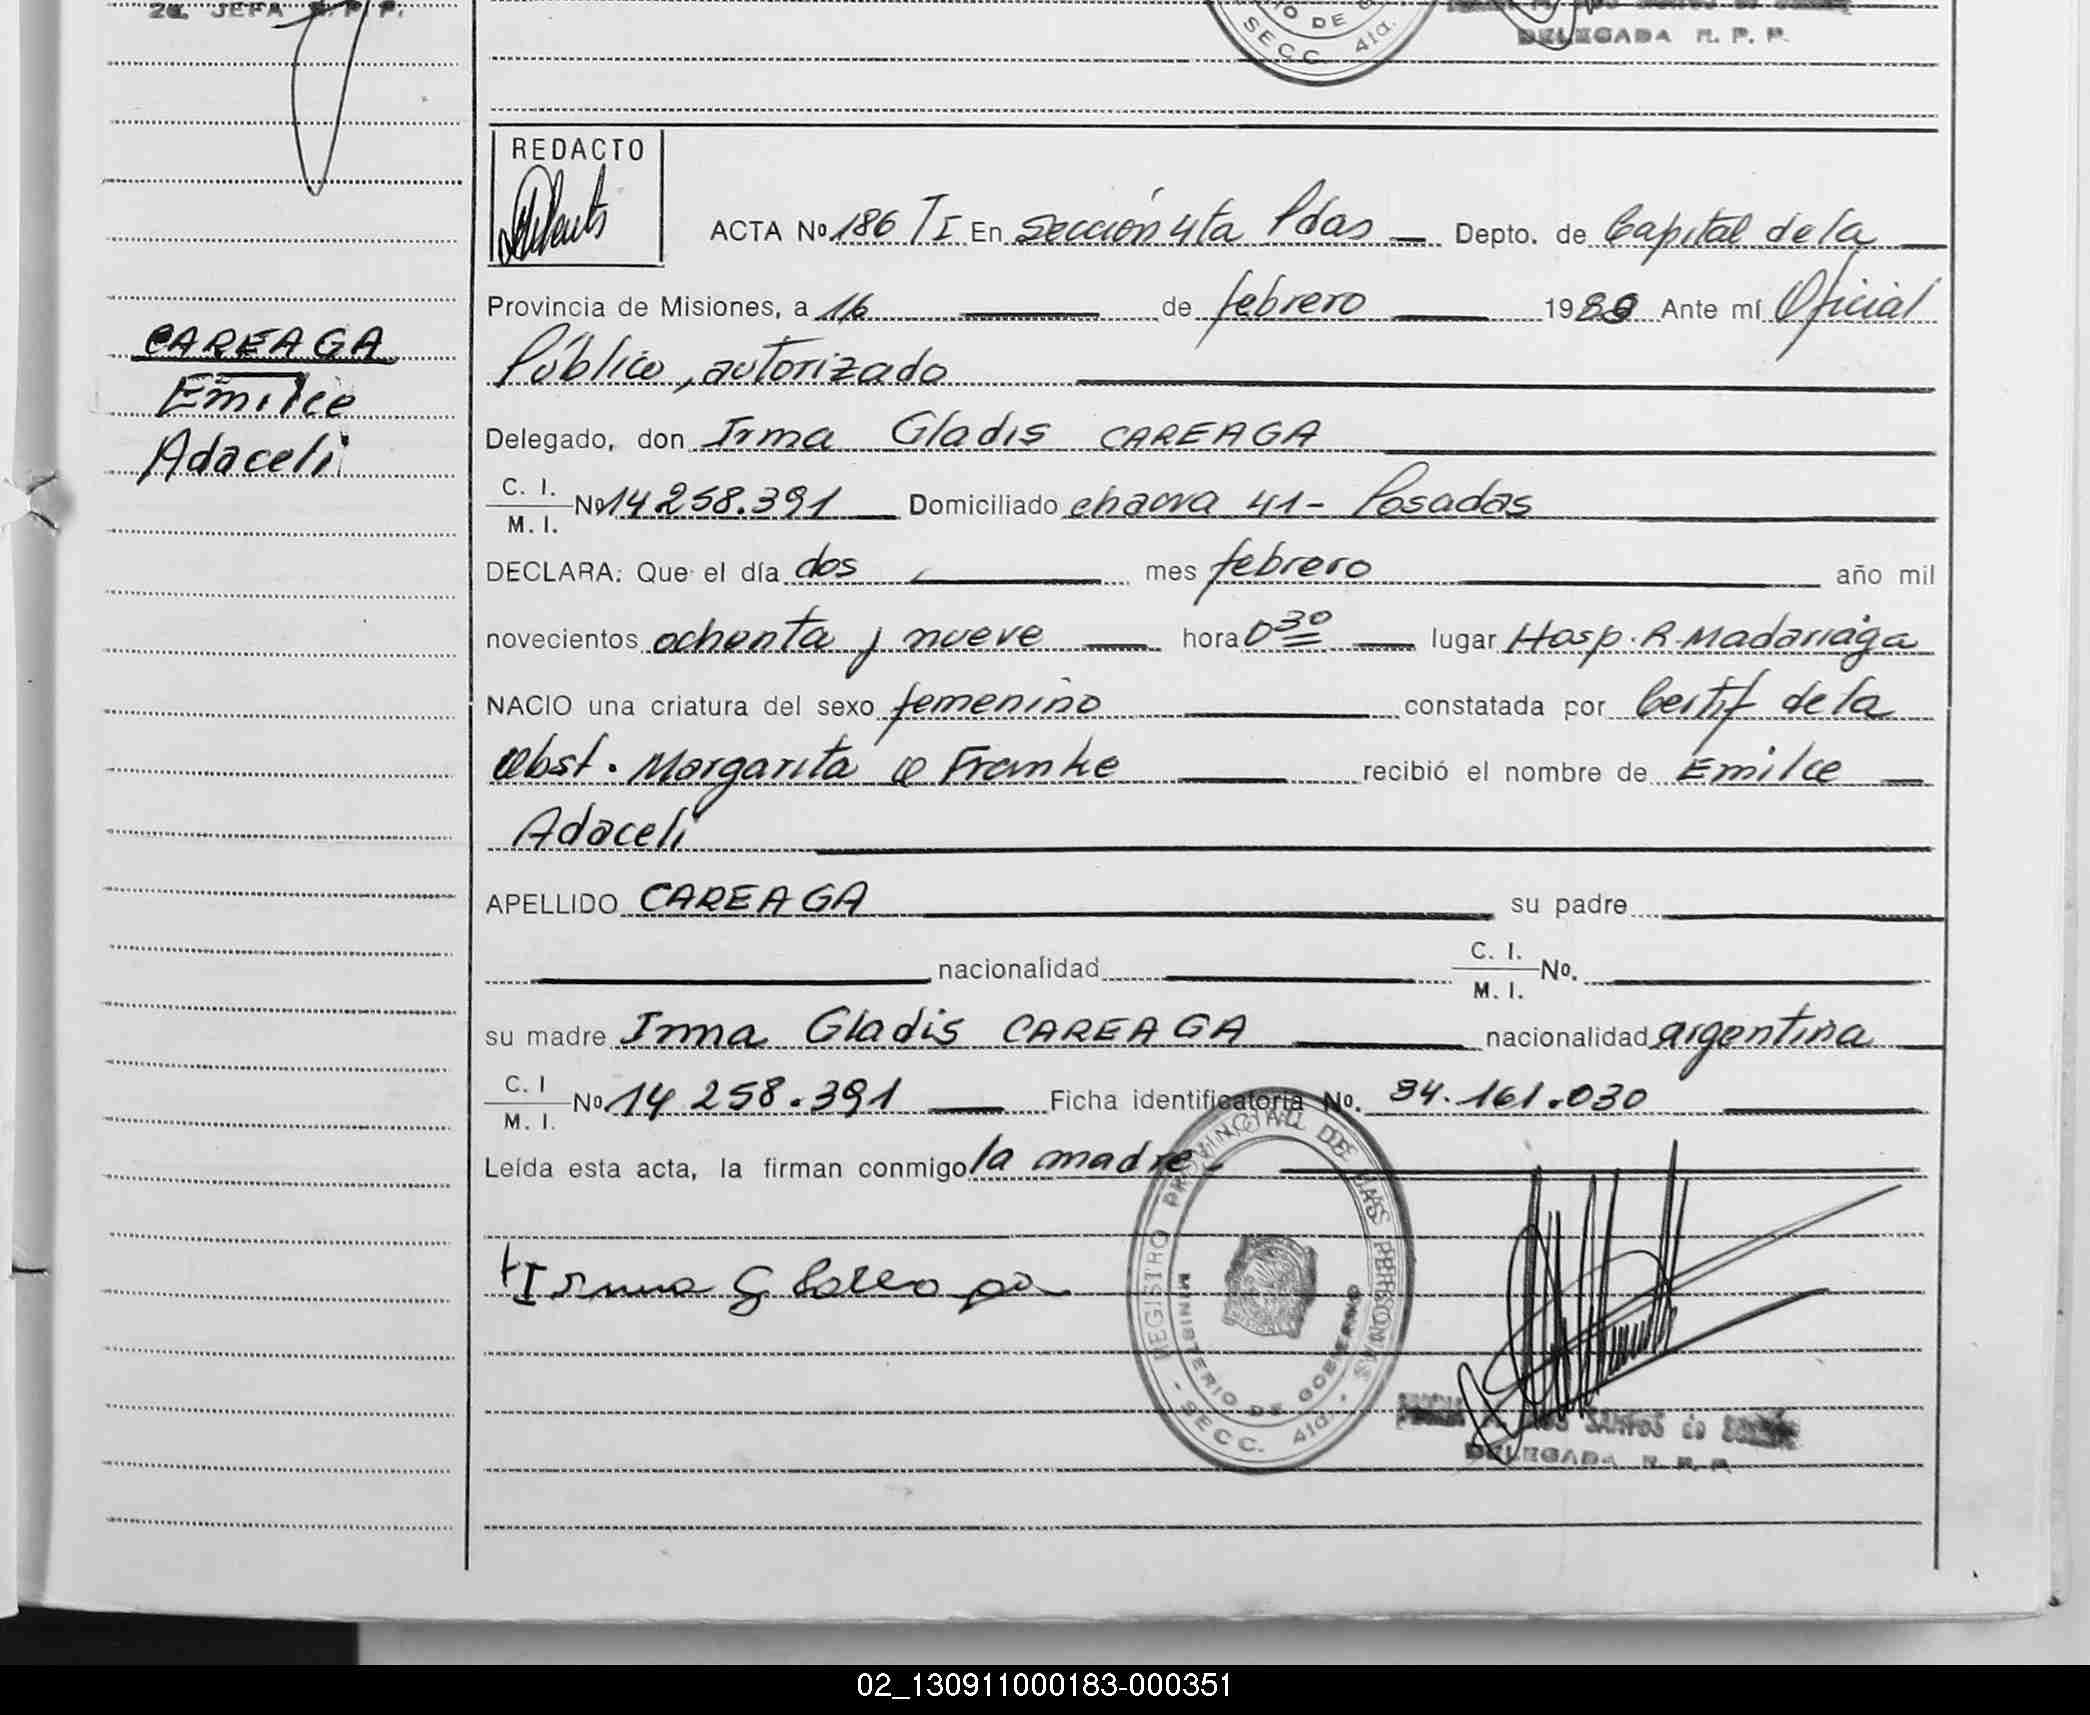 2a. JEFA R. P. P.
SECC. 4ta.
DELEGADA R. P. P.
REDACTO
ACTA Nº 186 TI En Sección 4ta Pdas Depto. de Capital de la
Provincia de Misiones, a 16 de febrero 1989 Ante mí Oficial
Público, autorizado
CAREAGA
Emilce
Adaceli
Delegado, don Irma Gladis CAREAGA
C. I.
M. I. Nº 14 258.391 Domiciliado chacra 41 - Posadas
DECLARA: Que el día dos mes febrero año mil
novecientos ochenta y nueve hora 0 30 lugar Hosp. R. Madariaga
NACIO una criatura del sexo femenino constatada por Certif de la
Obst. Margarita O Franke recibió el nombre de Emilce
Adaceli
APELLIDO CAREAGA su padre
nacionalidad C. I.
M. I. No.
su madre Irma Gladis CAREAGA nacionalidad argentina
C. I
M. I. Nº 14 258.391 Ficha identificatoria No. 34.161.030
Leída esta acta, la firman conmigo la madre -
Irma G Careaga
REGISTRO PROVINCIAL DE LAS PERSONAS
MINISTERIO DE GOBIERNO
- SECC. 4ta. -
SANTOS de
DELEGADA R. P. P.
02_130911000183-000351